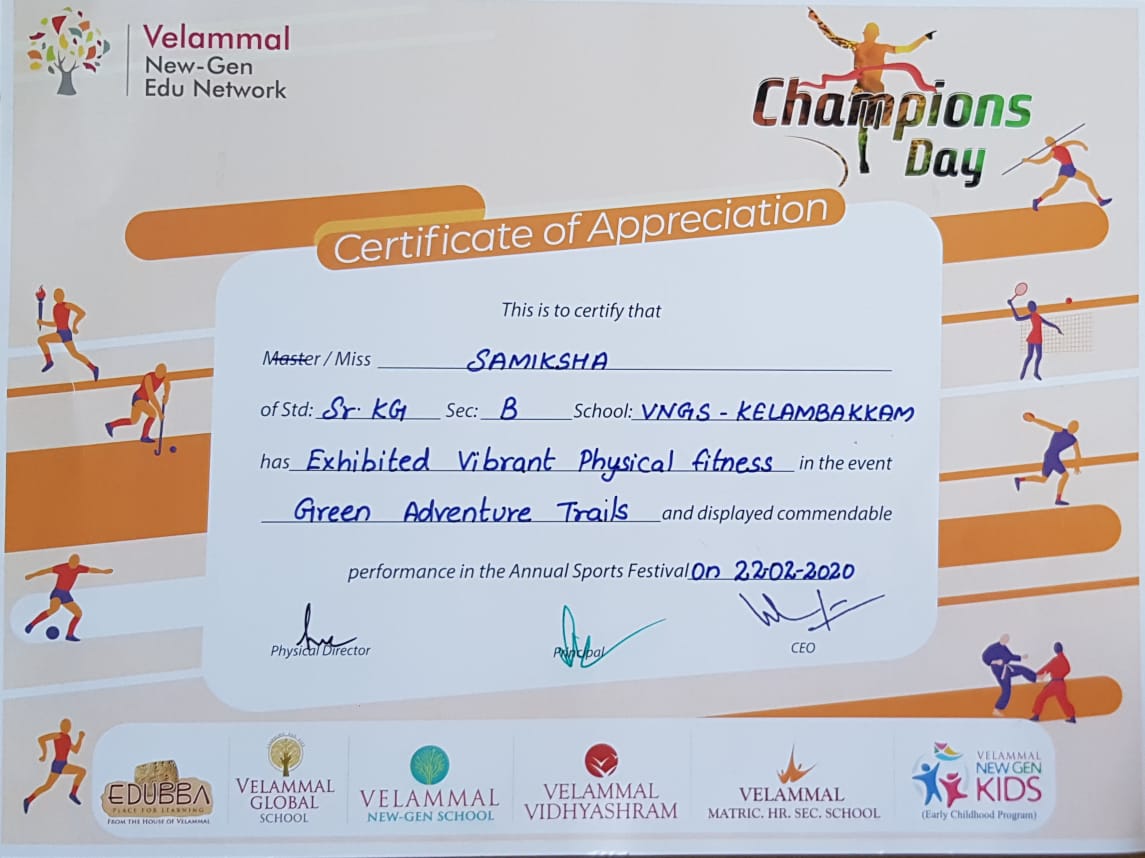 Velammal
New-Gen
Edu Network
Champions
Day
Certificate of Appreciation
This is to certify that
Master / Miss SAMIKSHA
of Std: Sr. KG Sec: B School: VNGS - KELAMBAKKAM
has Exhibited Vibrant Physical fitness in the event
Green Adventure Trails and displayed commendable
performance in the Annual Sports Festival On 22-02-2020
Physical Director
Principal
CEO
EDUBBA
PLACE FOR LEARNING
FROM THE HOUSE OF VELAMMAL
VELAMMAL
GLOBAL
SCHOOL
VELAMMAL
NEW-GEN SCHOOL
VELAMMAL
VIDHYASHRAM
VELAMMAL
MATRIC. HR. SEC. SCHOOL
VELAMMAL
NEW GEN
KIDS
(Early Childhood Program)